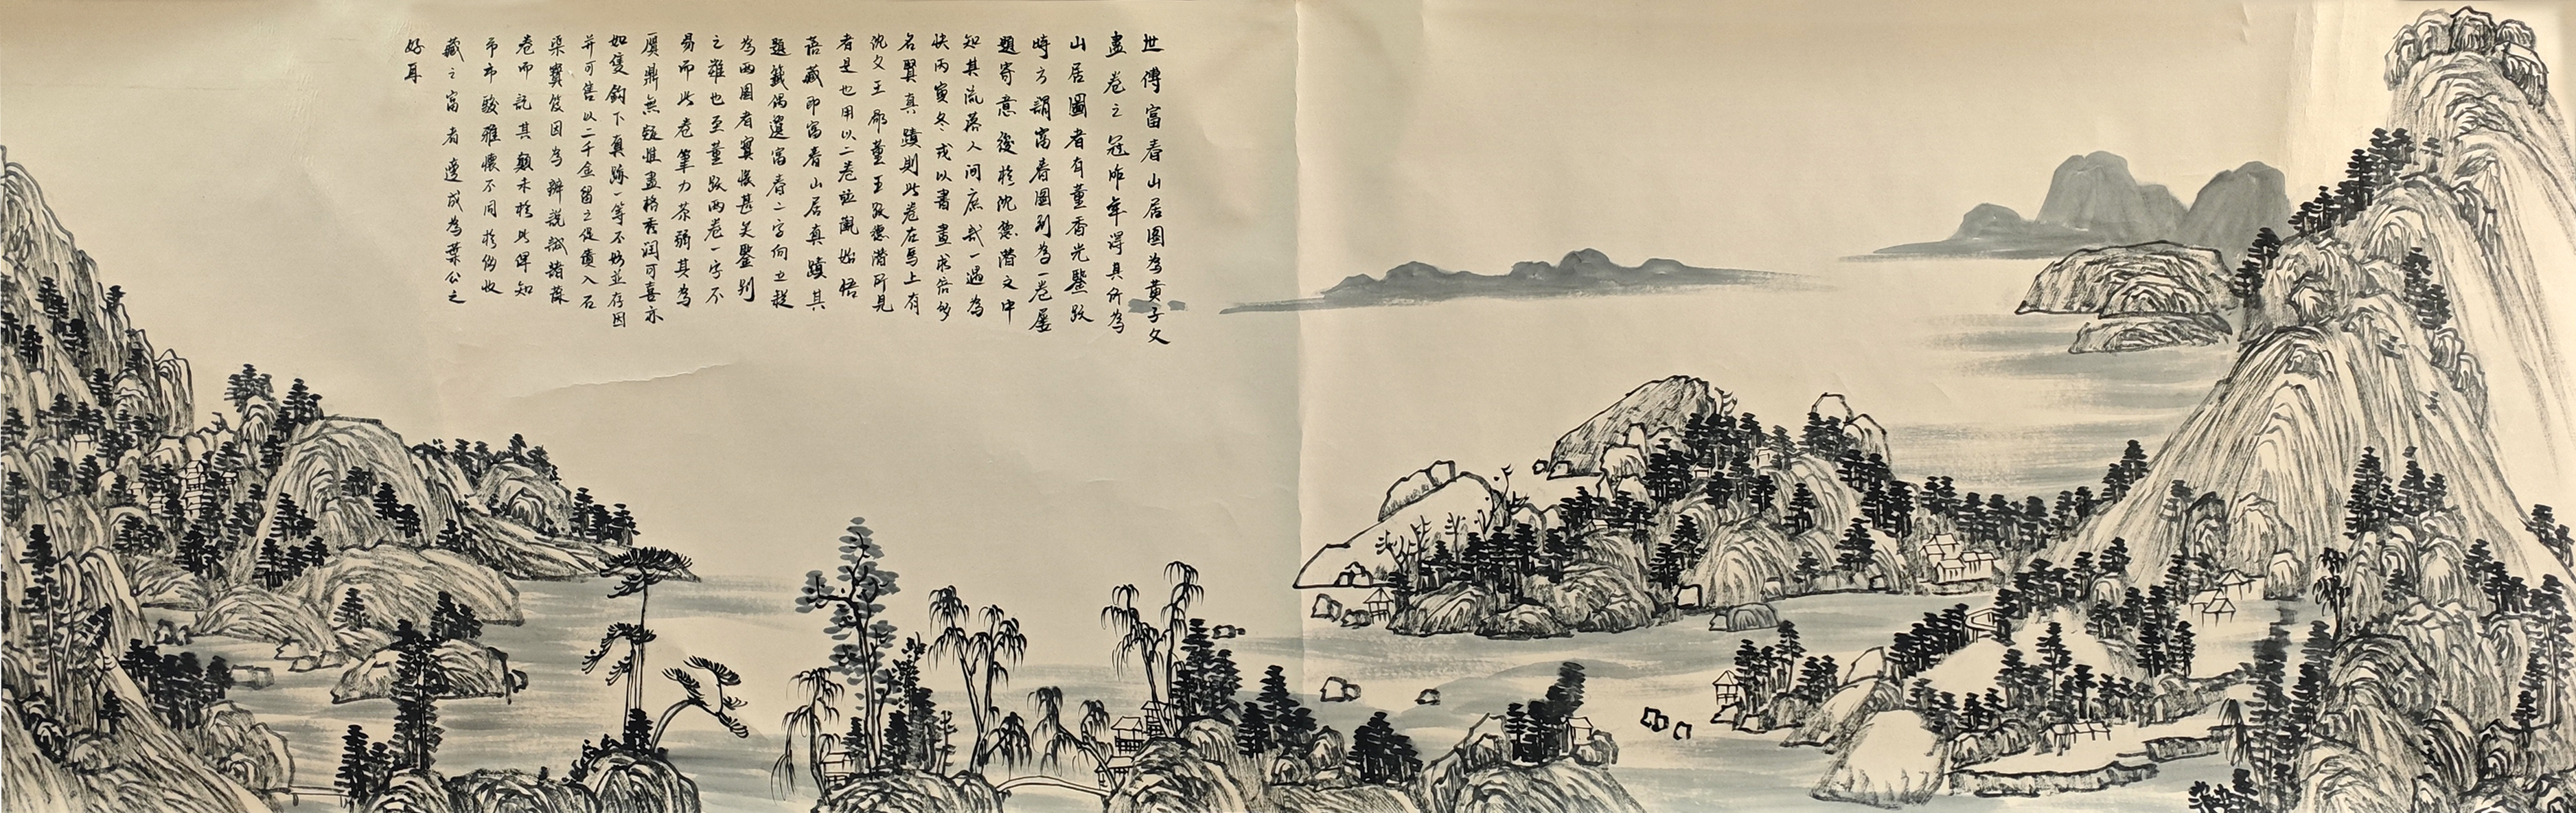 世傳富春山居圖為黃子久
畫卷之冠昨年得其所為
山居圖者有董香光鑒跋
時方謂富春圖別為一卷屢
題寄意後於沈德潛文中
知其流落人间庶幾一遇為
快丙寅冬或以書畫求售多
名賢真蹟則此卷在焉上有
沈文王鄒董五跋德潛所見
者是也用以二卷並觀始悟
舊藏即富春山居真蹟其
題籤偶遺富春二字向之疑
為兩圖者實悞甚矣鑒別
之難也至董跋兩卷一字不
易而此卷筆力茶弱其為
贋鼎無疑惟畫格秀润可喜亦
如雙鈎下真跡一等不妨並存因
并所售以二千金留之俾續入石
渠寶笈因為辨說識諸舊
卷而記其顛末於此俾知
市駿雅懷不同於侈收
藏之富者遽成為葉公之
好耳